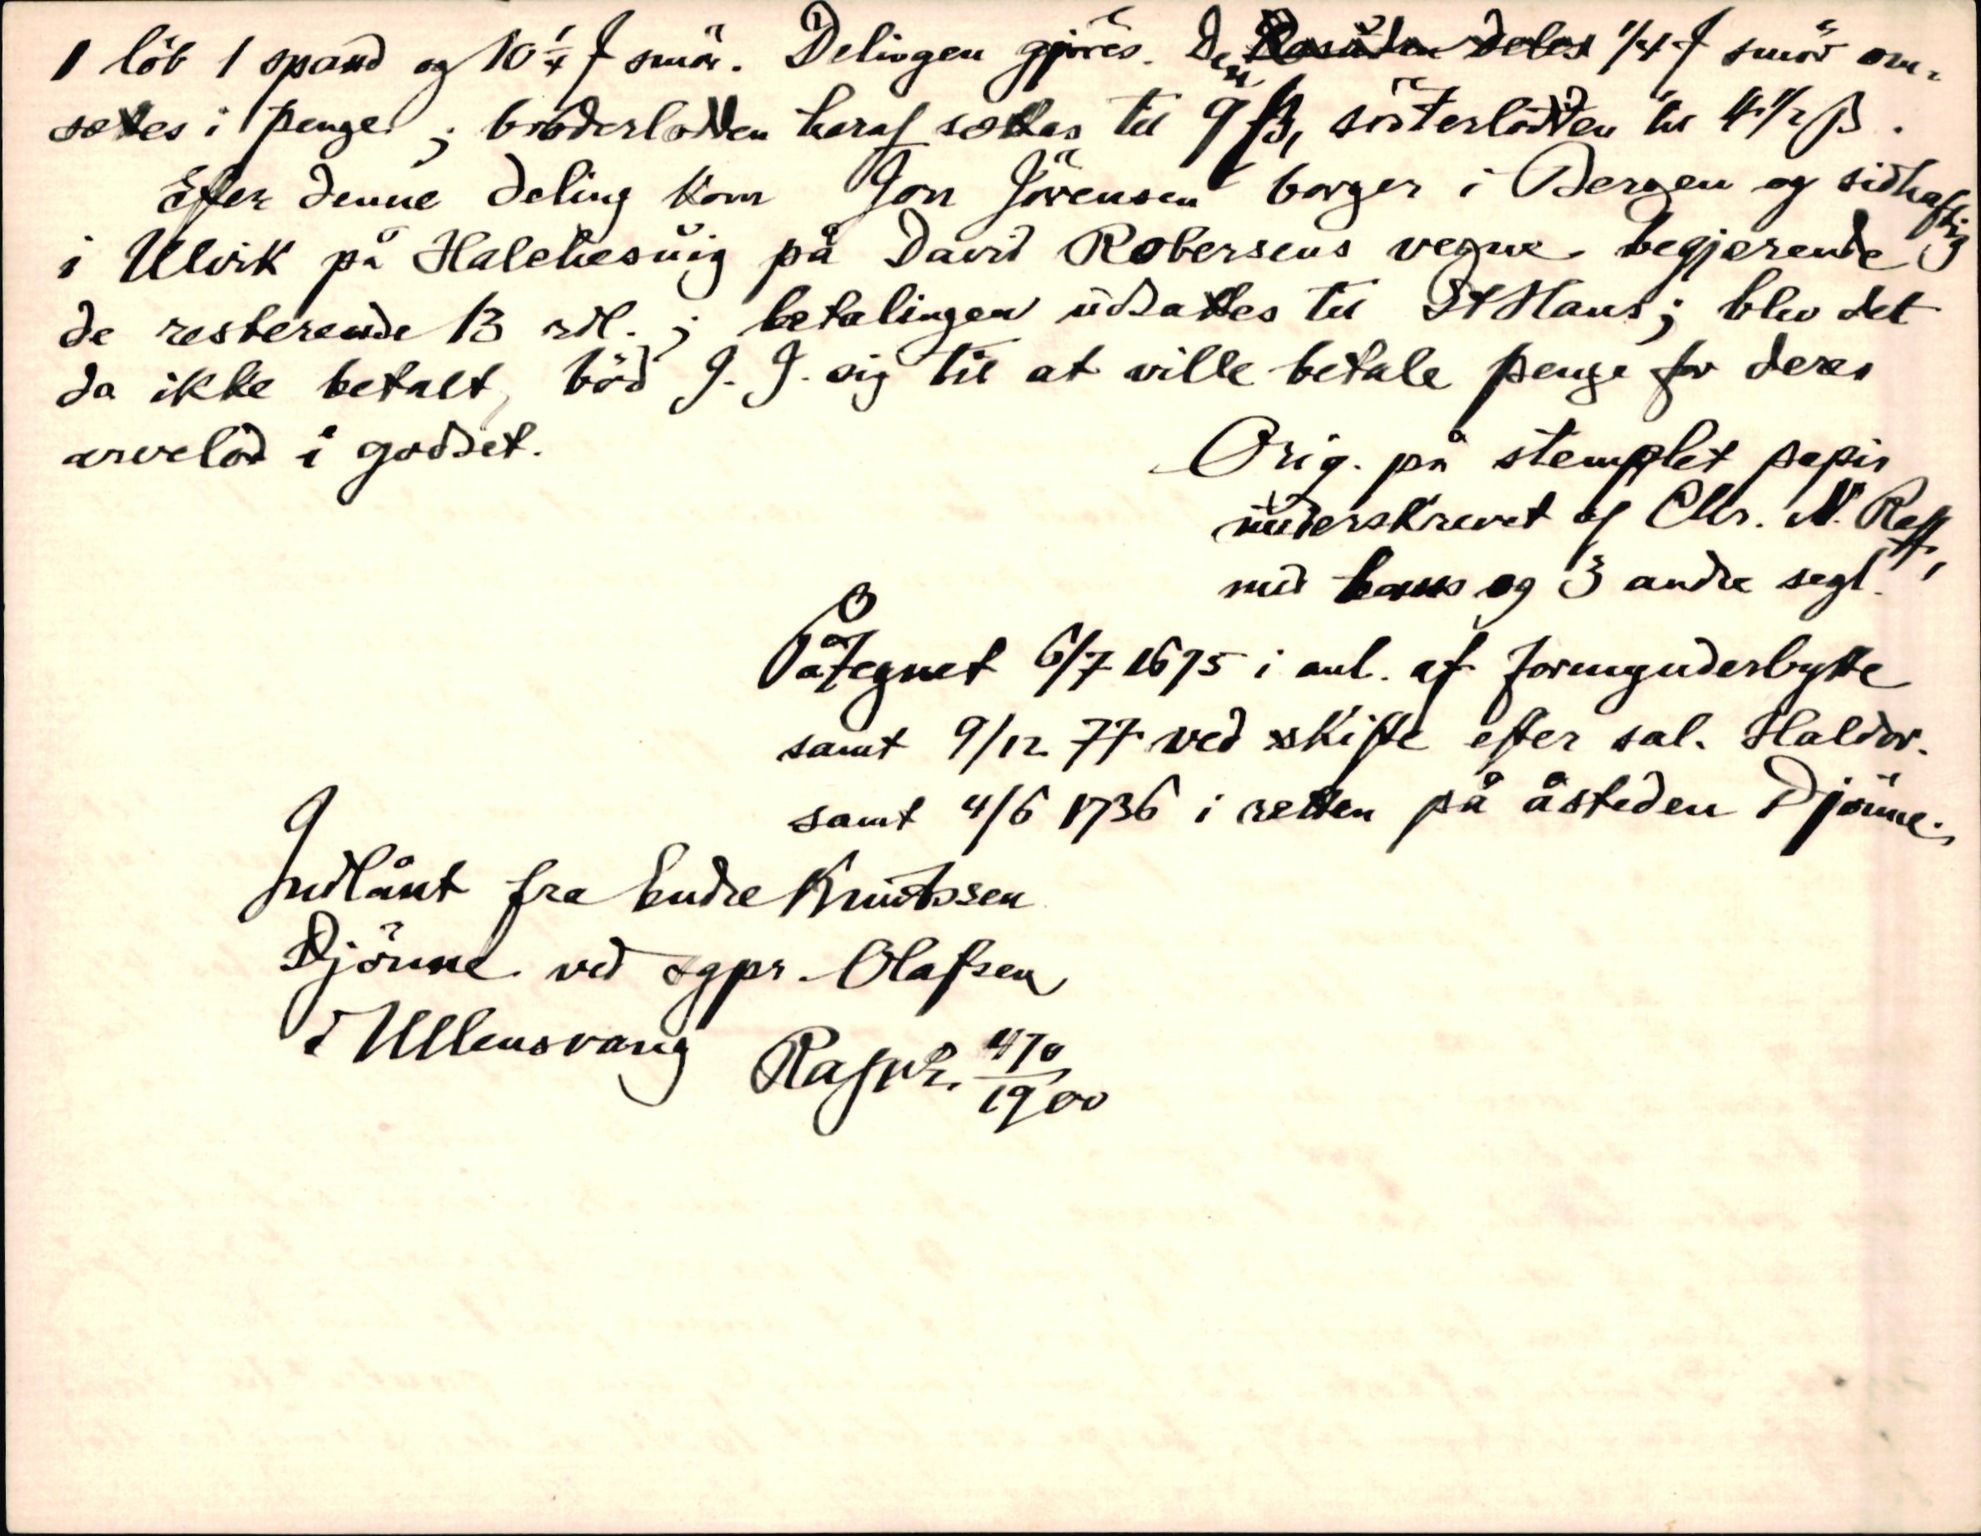 1 löb 1 spand og 10 1/4 ℔ smör. Delingen gjöres. Den 1/4 ℔ smör om-
sættes i penge; broderlodden heraf sættes til 9 β, sösterlodden til 4 1/2 β.
Efter denne deling kom Jon Jörensen borger i Bergen og sidhaftig
i Ulvik på Halehesvig på David Robersens vegne begjerende
de resterende 13 rdl.; betalingen udsattes til St Hans; blev det
da ikke betalt, böd J. J. sig til at ville betale penge for deres
arvelod i godset.
Orig. på stemplet papir
underskrevet af Chr. N. Raff,
med hans og 3 andre segl.
Påtegnet 6/7 1675 i anl. af formynderbytte
samt 9/12 77 ved skifte efter sal. Haldor.
samt 4/6 1736 i retten på åsteden Djönne.
Indlånt fra Endre Knutssen
Djönne ved sgpr. Olafsen
i Ullensvang Rafpr. 470/1900